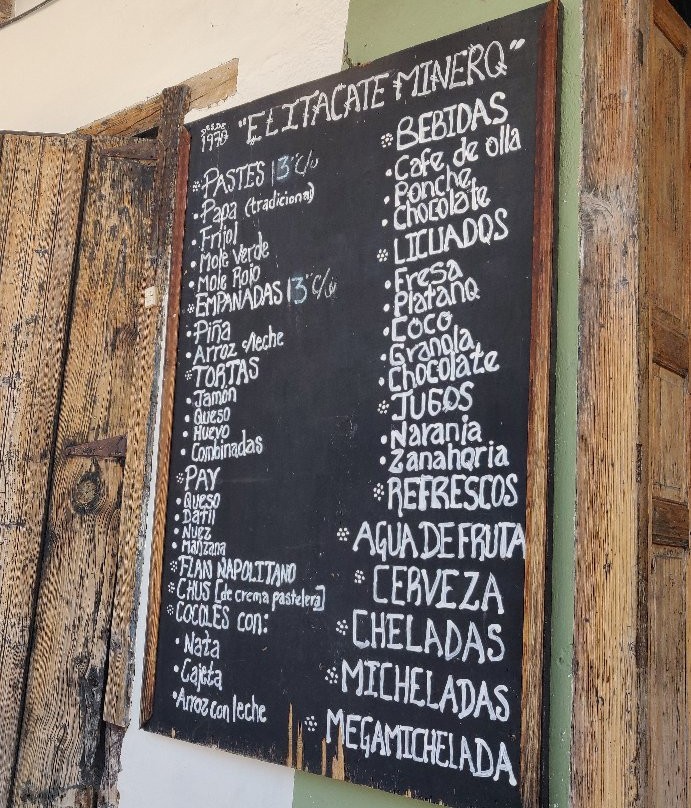 DESDE
1970
"EL ITACATE MINERO"
PASTES 13°° c/u
Papa (tradicional)
Frijol
Mole Verde
Mole Rojo
EMPANADAS 13°° c/u
Piña
Arroz c/leche
TORTAS
Jamón
Queso
Huevo
Combinadas
PAY
Queso
Datil
Nuez
Manzana
FLAN NAPOLITANO
CHUS [de crema pastelera]
COCOLES con:
Nata
Cajeta
Arroz con leche
BEBIDAS
Cafe de olla
Ponche
Chocolate
LICUADOS
Fresa
Platano
Coco
Granola
Chocolate
JUGOS
Naranja
Zanahoria
REFRESCOS
AGUA DE FRUTA
CERVEZA
CHELADAS
MICHELADAS
MEGAMICHELADA